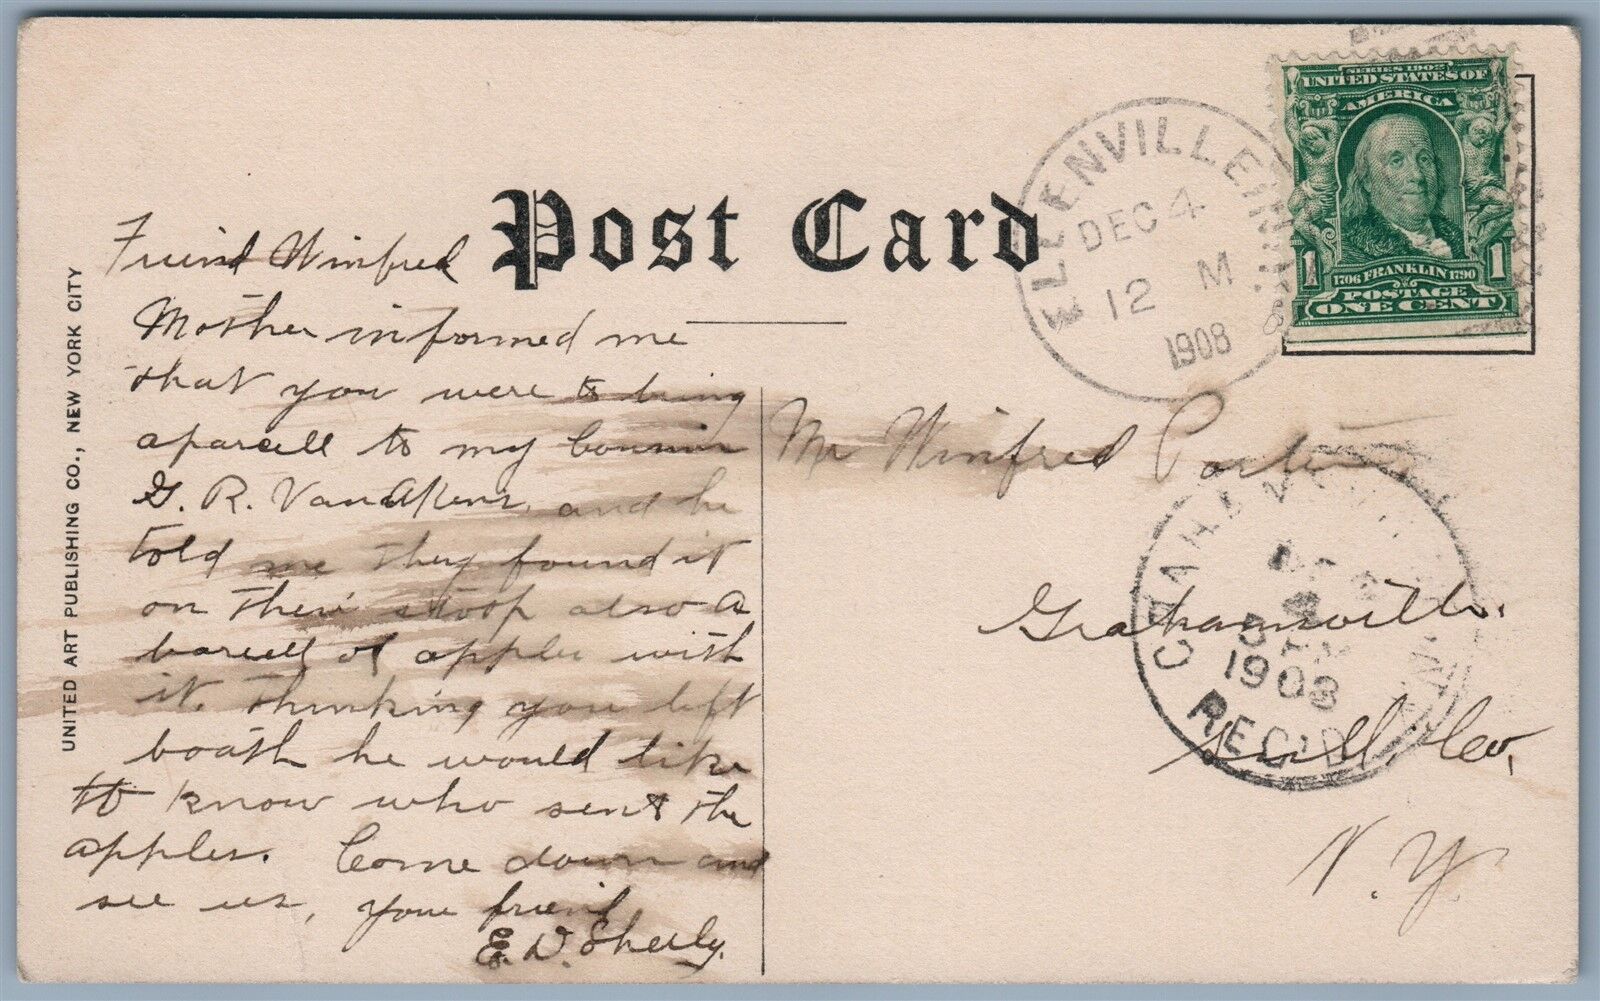 Post Card
UNITED ART PUBLISHING CO., NEW YORK CITY
Friend Winfred
Mother informed me
that you were to bring
aparcell to my Cousin
G. R. VanAkens, and he
told me they found it
on their stoop also a
barrell of apples with
it. Thinking you left
boath he would like
to know who sent the
apples. Come down and
see us, your friend
E. D. Sheely.
ELLENVILLE
DEC 4
12 M
1908
SERIES 1902
UNITED STATES OF
AMERICA
1706 FRANKLIN 1790
1 1
POSTAGE
ONE CENT
Mr Winfred Porter
Grahamsville.
Sull. Co,
N. Y.
GRAHAMSVILLE
5
1908
REC'D